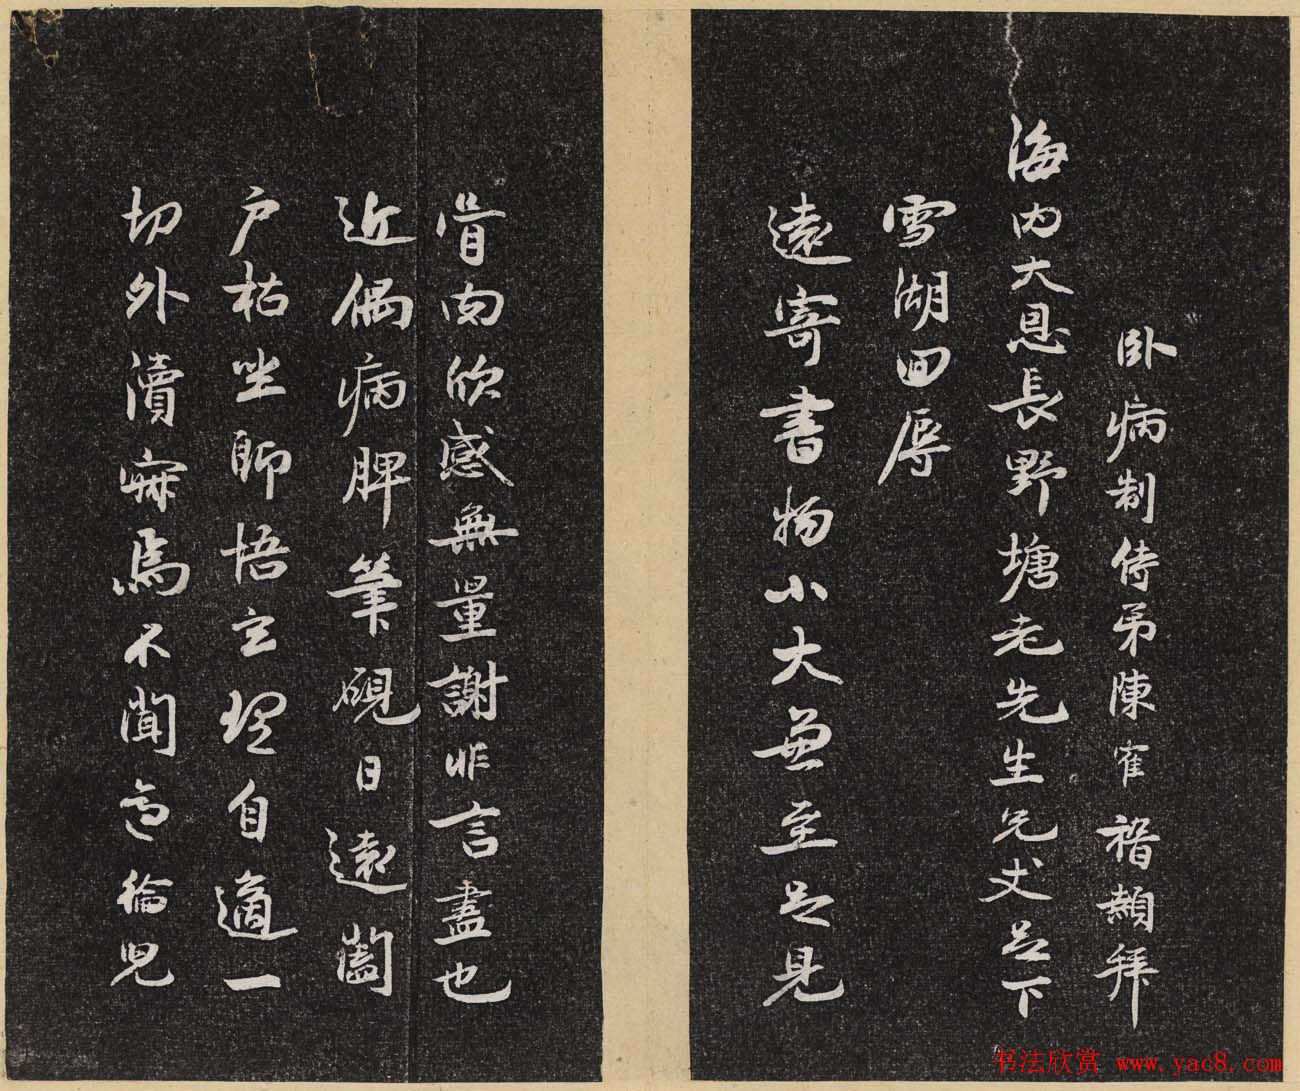 卧病制侍弟陳寉稽顙拜
海内大恩長野塘老先生兄丈足下
雪湖回辱
遠寄書物小大兼至足見
骨肉欣感無量謝非言盡也
近偶病脾筆硯日遠闔
户枯坐聊悟玄理自適一
切外瀆寐焉不聞也
書法欣賞 www.yac8.com